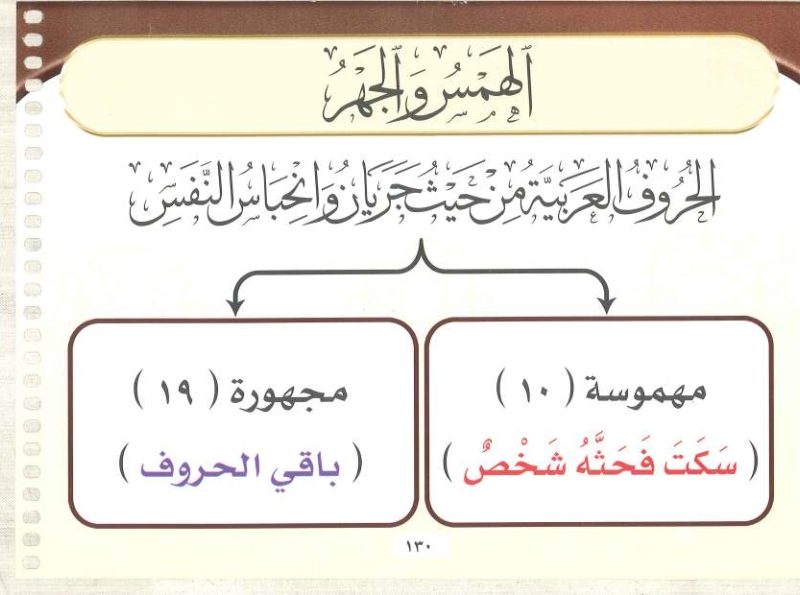 الْهَمْسُ وَالْجَهْرُ
الْحُرُوفُ الْعَرَبِيَّةُ مِنْ حَيْثُ جَرَيَانُ وَانْحِبَاسُ النَّفَسِ
مهموسة ( ١٠ )
( سَكَتَ فَحَثَّهُ شَخْصٌ )
مجهورة ( ١٩ )
( باقي الحروف )
١٣٠